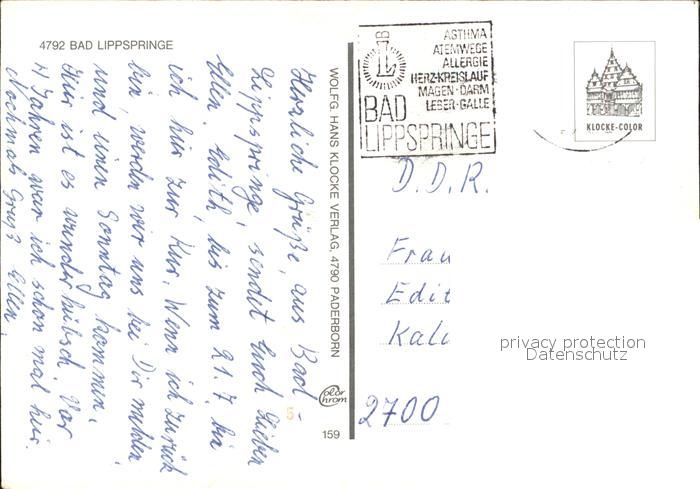 4792 BAD LIPPSPRINGE
Herzliche Grüße, aus Bad-
Lippspringe, sendet Euch Lieben
Ellen. Edith, bis zum 21.7. bin
ich hier zur Kur. Wenn ich zurück
bin, werden wir uns bei Dir melden
und einen Sonntag kommen.
Hier ist es wunderhübsch. Vor
4 Jahren war ich schon mal hier.
Nochmals Gruß Ellen.
WOLFG. HANS KLOCKE VERLAG, 4790 PADERBORN
color
chrom
159
5
LB
ASTHMA
ATEMWEGE
ALLERGIE
HERZ-KREISLAUF
MAGEN-DARM
LEBER-GALLE
BAD
LIPPSPRINGE
KLOCKE-COLOR
D.D.R.
Frau
Edit
Kal
2700
privacy protection
Datenschutz